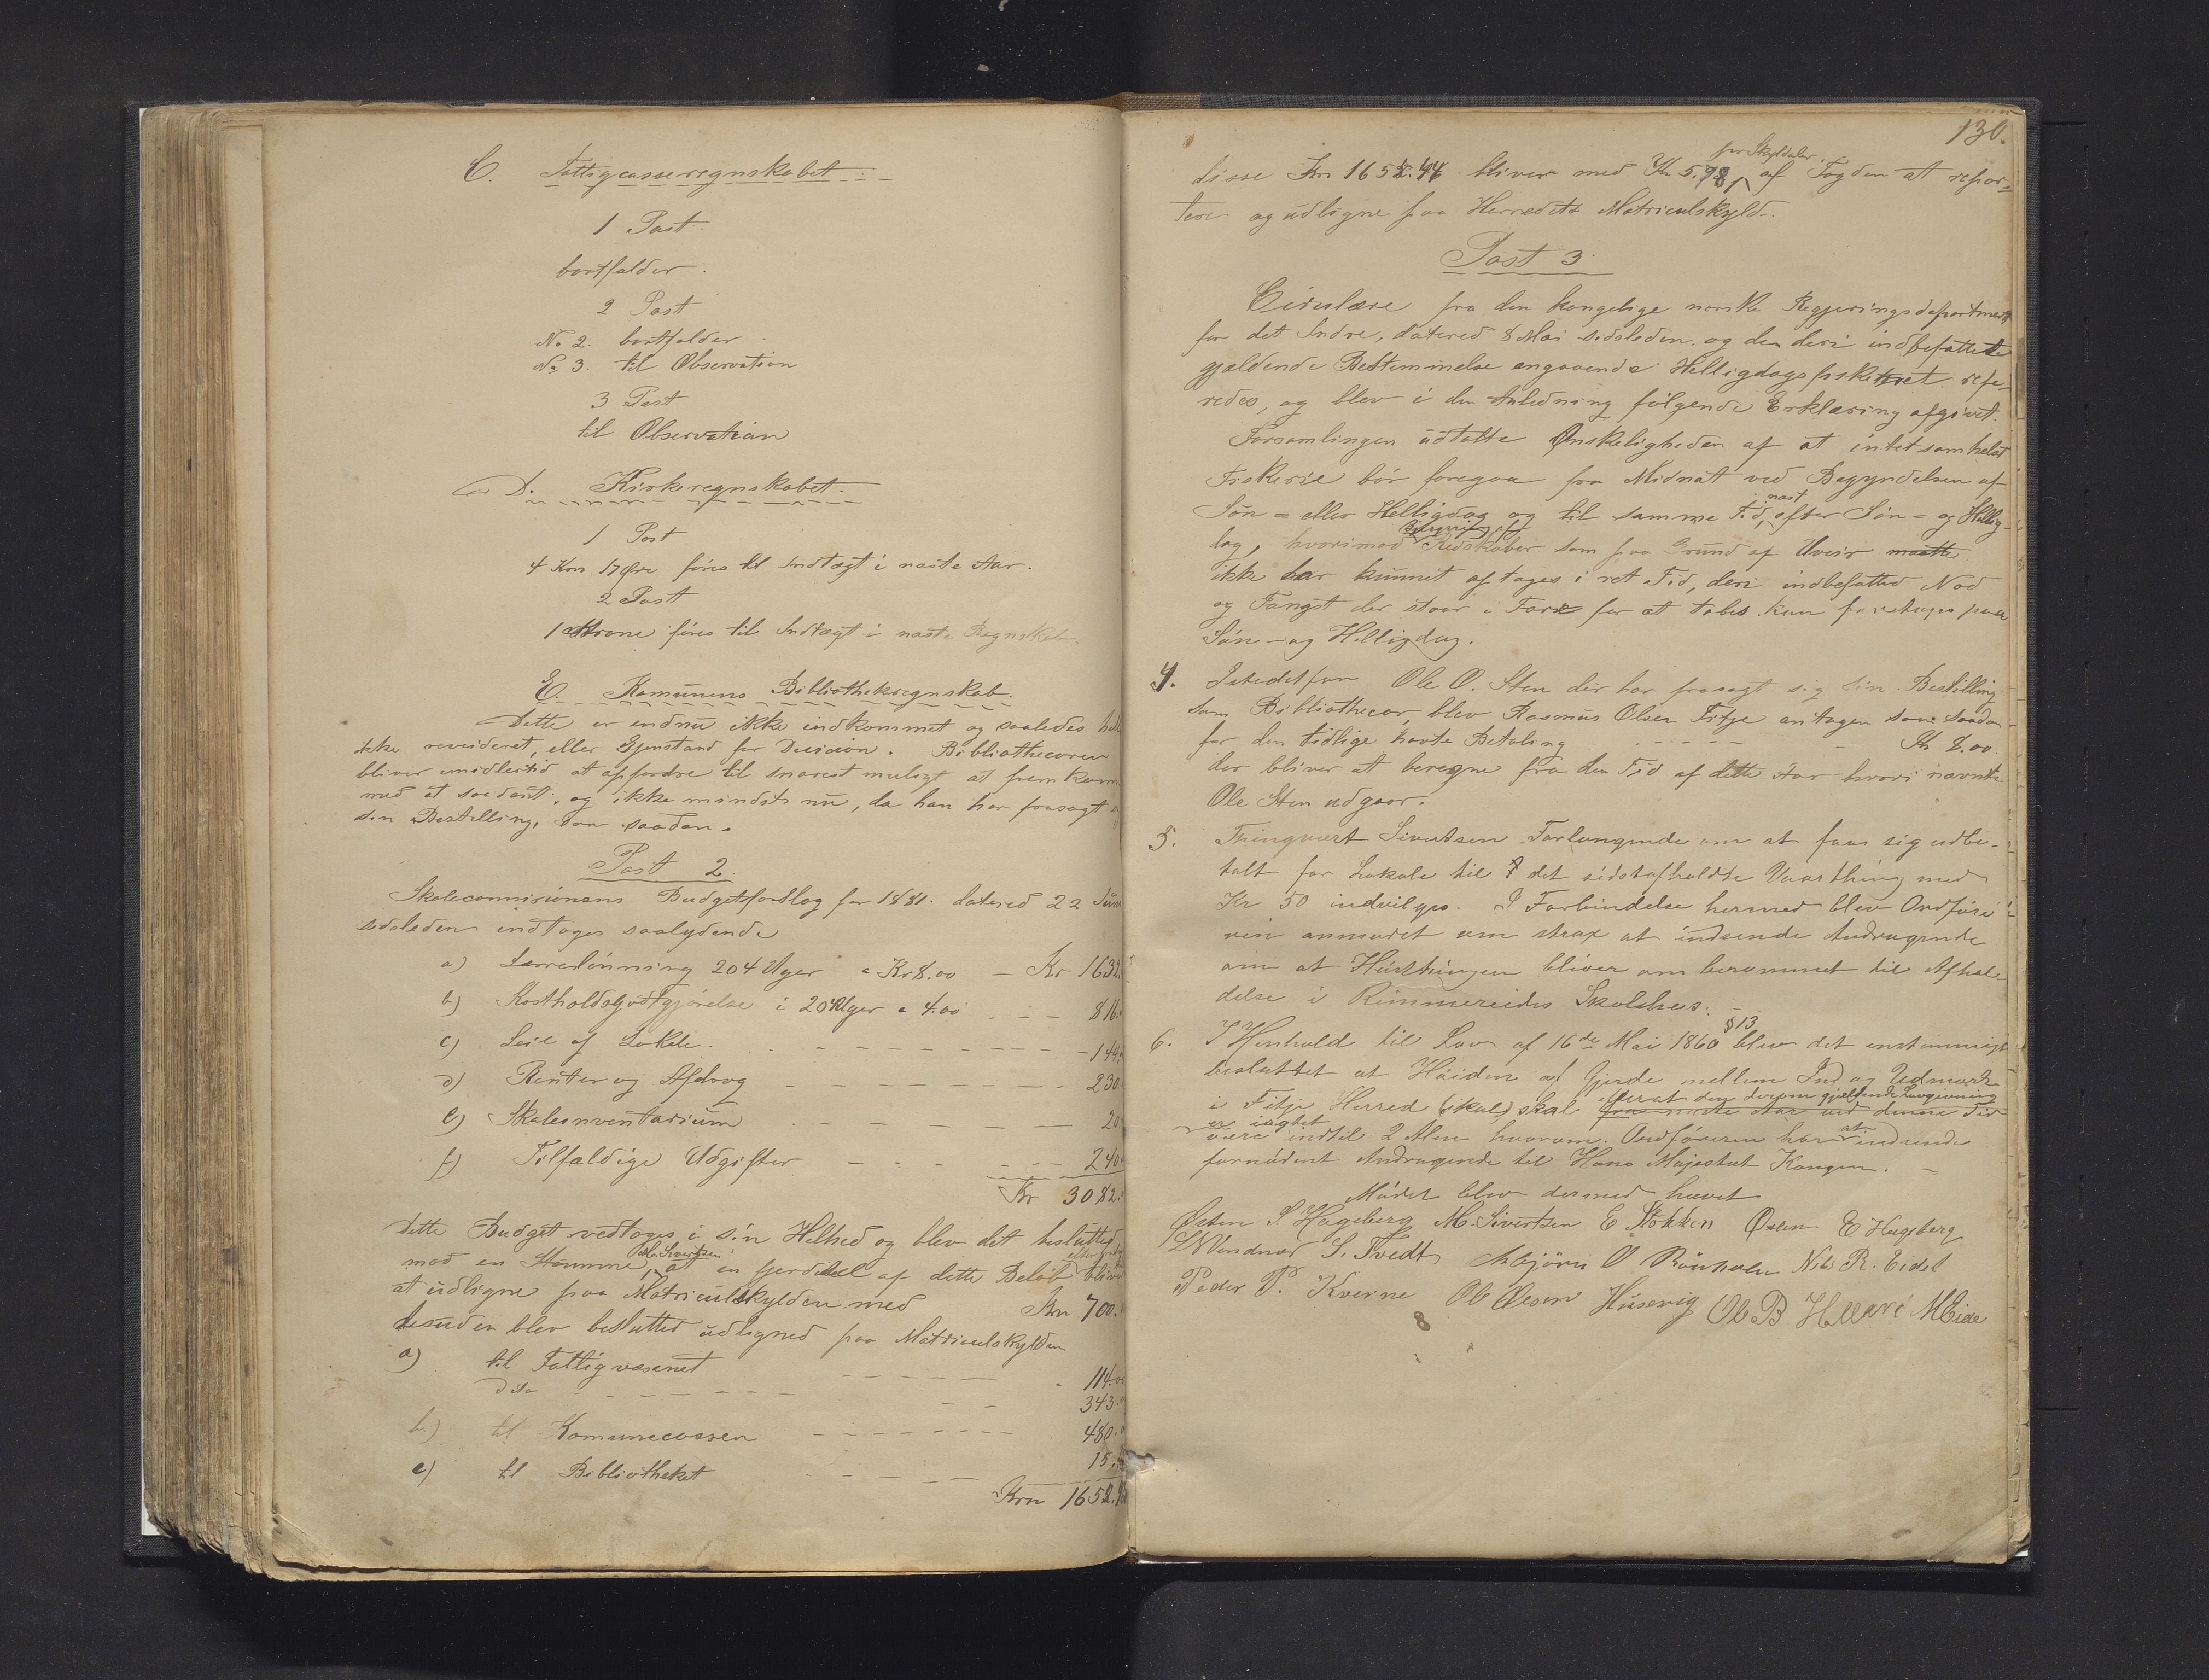 C. Fattigcasseregnskabet.
1 Post.
bortfalder.
2 Post
No 2. bortfalder
No 3. til Observation
3 Post
til Observation
D. Kirkeregnskabet.
1 Post
4 Kro 17 Øre føres til Indtægt i næste Aar.
2 Post
1 Krone føres til Indtægt i næste Regnskab.
E. Komunens Bibliotheksregnskab.
Dette er endnu ikke indkommet og saaledes
ikke revideret, eller Gjenstand for Decision. Bibliothecaren
bliver imidlertid at affordre til snarest muligt at fremkom
med et saadant, og ikke mindst nu, da han har frasagt
sin Bestilling, som saadan.
Post 2.
Skolecommisionens Budgetforslag for 1881. datered 22 Juni
sidsleden indtoges saalydende
a) Lærerlønning 204 Uger a Kr 8.00 - Kr 1632.
b) Kostholdsgodtgjørelse i 204 Uger a 4.00 - - - 816.
c) Leie af Lokale. - - - 144.
d) Renter og Afdrag - - - 230
e) Skoleinventarium - - - 20
f) Tilfældige Udgifter - - - 240
Kr 3082.
Dette Budget vedtoges i sin Helhed og blev det besluttet
mod en Stemme, M. Sivertsen at en Fjerdedel af dette Beløb bliver
at udligne paa Matriculskylden med Kr 700.
desuden blev besluttet udligned paa Matriculskylden
a) til Fattigvæsenet - - - 114.00
dito - - - 343.
b.) til Komunecassen - - - 480.
c) til Bibliotheket - - - 15.
Krn 1652.
130.
disse Krn 1652.44 bliver med Kr 5.98, per Skylddaler af Fogden at repar-
tere og udligne paa Herredets Matriculskyld.
Post 3.
Circulære fra den kongelige norske Regjeringsdepartment
for det Indre, datered 8 Mai sidsleden og den deri indbefattede
gjældende Bestemmelse angaaende Helligdagsfiskeriet refe-
redes, og blev i den Anledning følgende Erklæring afgivet.
Forsamlingen udtalte Ønskeligheden af at intetsomhelst
Fiskerie bør foregaa fra Midnat ved Begyndelsen af
Søn- eller Helligdag og til samme Tid næst efter Søn- og Hellig-
dag, hvorimod Bjergning af Redskaber som paa Grund af Uveir maatte
ikke har kunnet aftages i ret Tid, deri indbefatted Nod
og Fangst der staar i Fare for at tabes kan foretages paa
Søn- og Helligdag.
4. Istedetfor Ole O. Sten der har frasagt sig sin Bestilling
som Bibliothecar, blev Rasmus Olsen Fitje antagen som saadan
for den tidlige havte Betaling - - - Kr 8.00.
der bliver at beregne fra den Tid af dette Aar hvori nævnte
Ole Sten udgaar.
5. Thingvært Sivertsen Forlangende om at faa sig udbe-
talt for Lokale til det sidstafholdte Vaarthing med
Kr 50 indvilges. I Forbindelse hermed blev Ordføre-
ren anmodet om strax at indsende Andragende
om at Høstthinget bliver om berammet til Afhol-
delse i Rimmereides Skolehus.
6. I Henhold til Lov af 16de Mai 1860 §13 blev det enstemmigt
besluttet at Høiden af Gjerde mellem Ind og Udmark
i Fitje Herred (skal) skal efterat den derom gjældende Lovgivning
er iagttet
være indtil 2 Alen hvorom Ordføreren har at indsende
fornødent Andragende til Hans Majestæt Kongen.
Mødet blev dermed hævet
Østen S. Hageberg M. Sivertsen E Stokken Østen E Hageberg
S. Tvedt Asbjørn O Rønholm Nils R. Eidet
Peder P. Kverne Ole Olsen Husevig Ole B M Eide